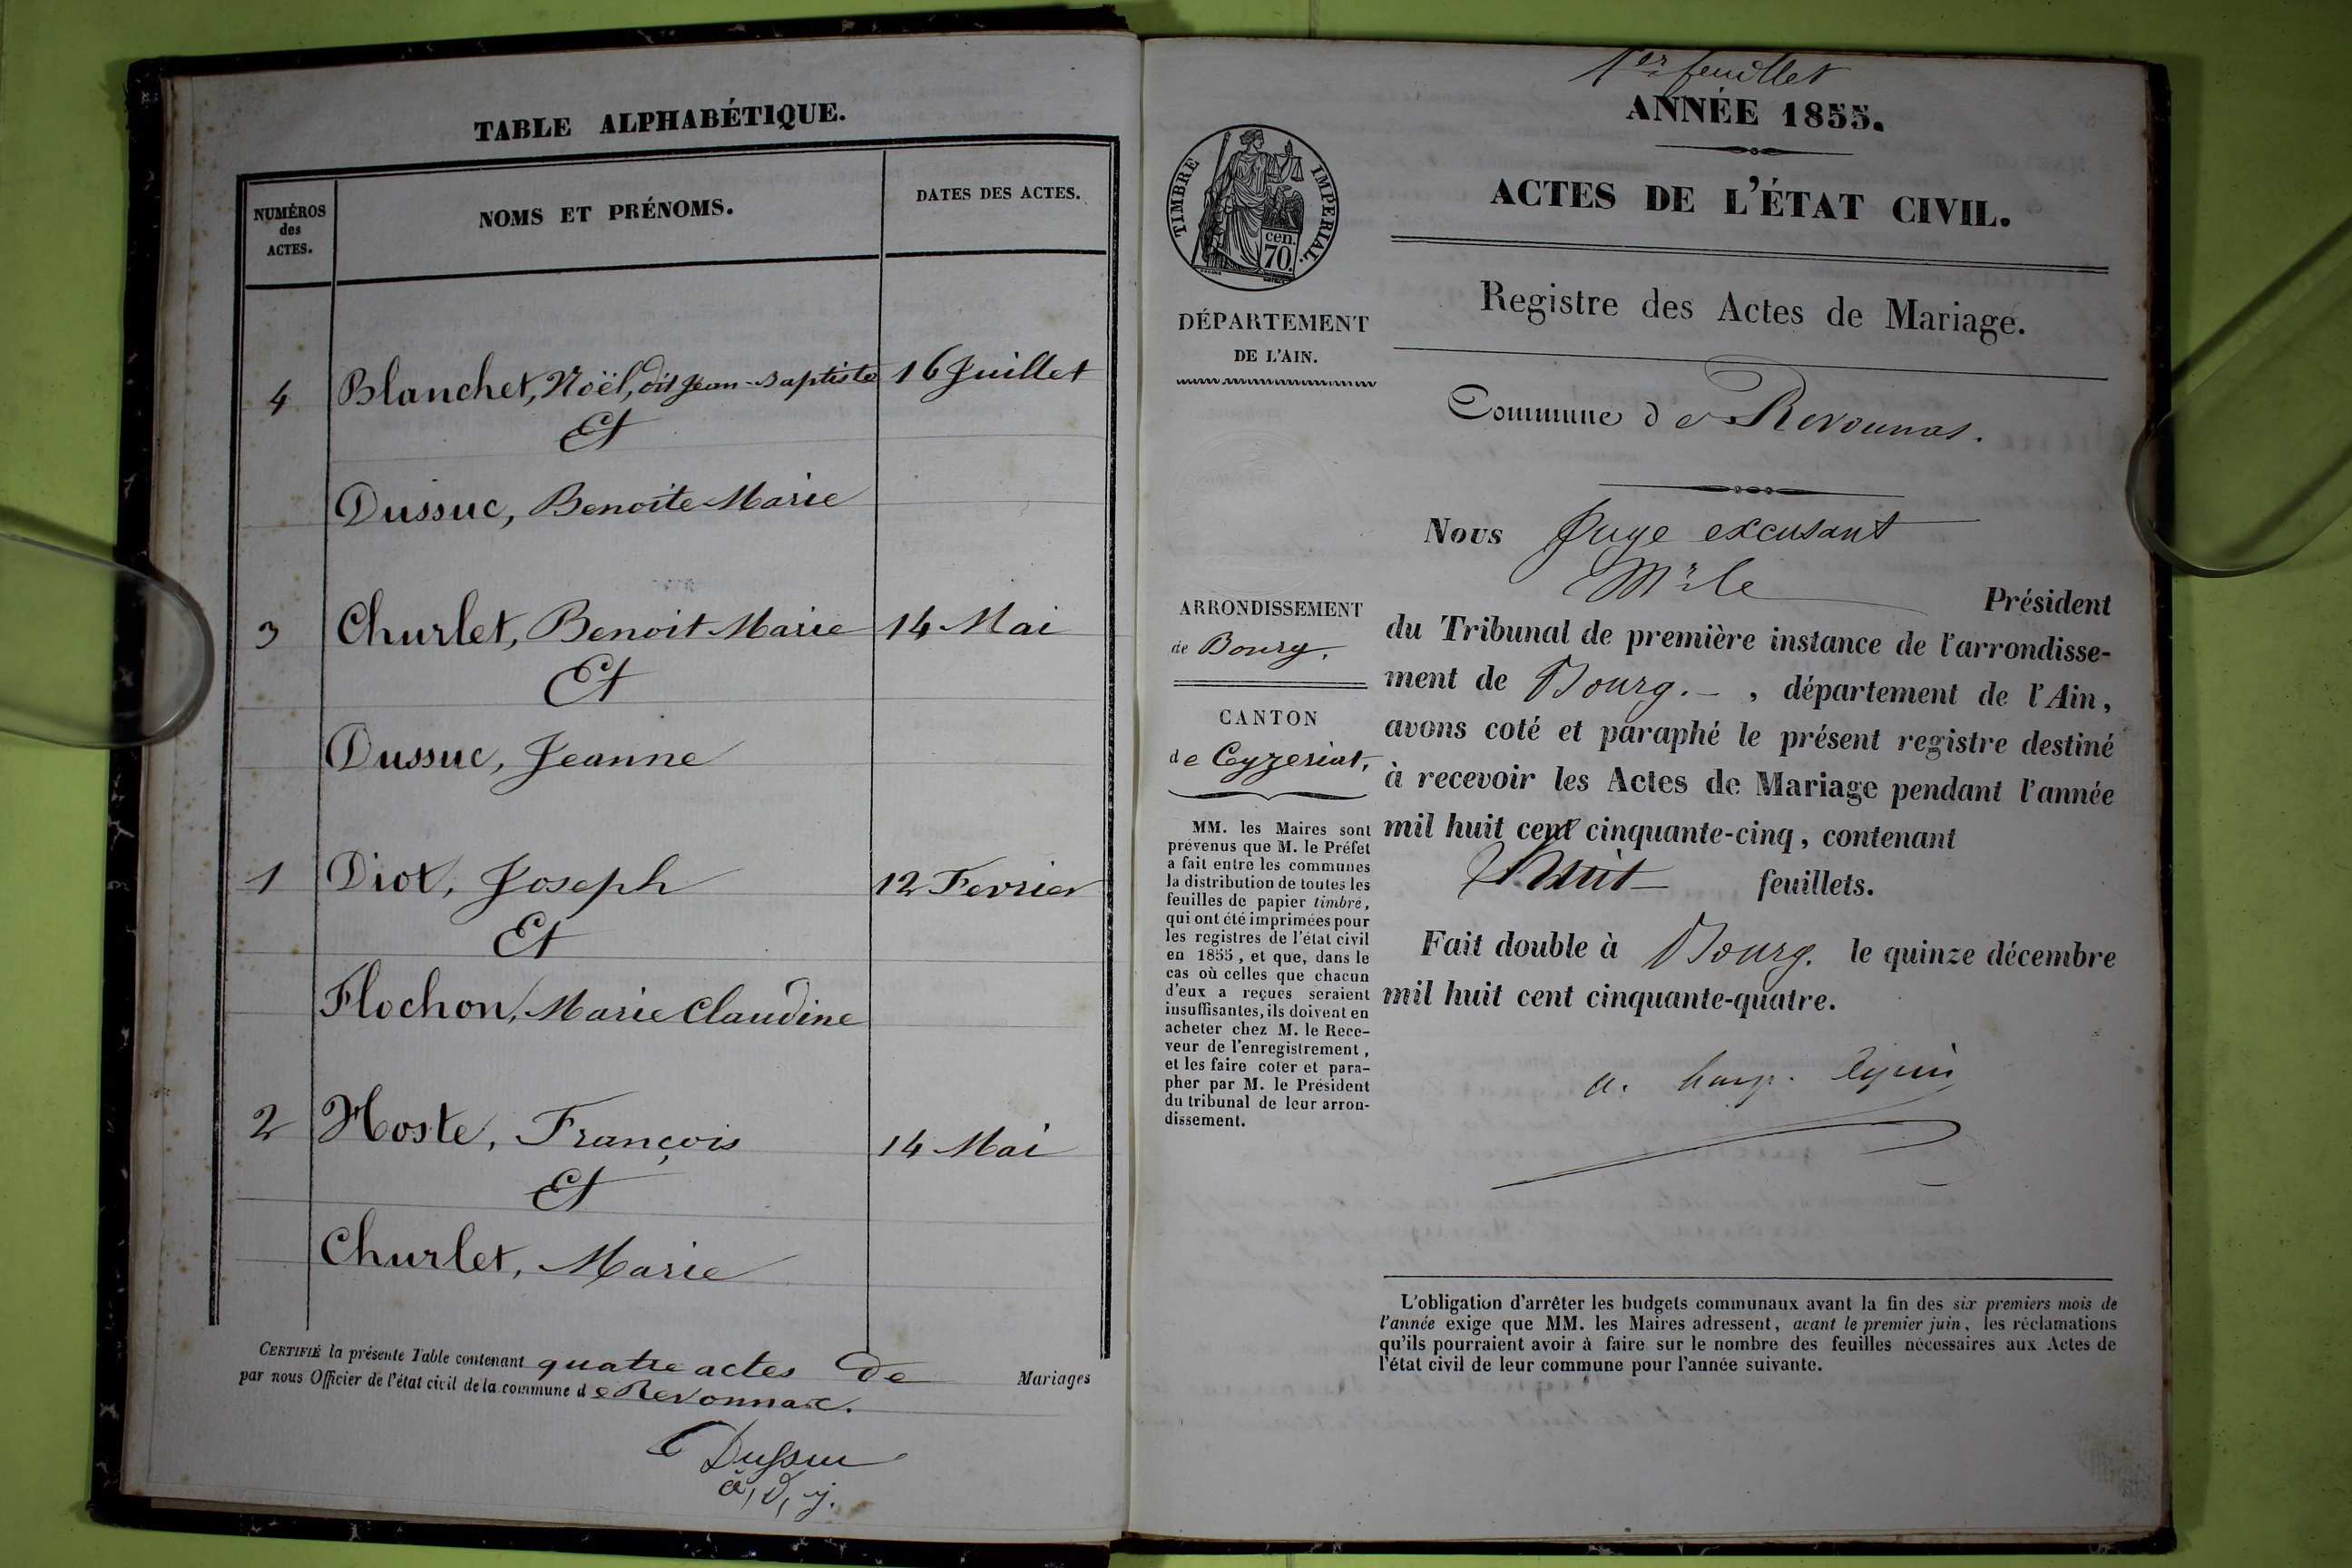 TABLE ALPHABÉTIQUE.
NUMÉROS
des
ACTES.
NOMS ET PRÉNOMS.
DATES DES ACTES.
4 Blanchet, Noël, dit Jean-Baptiste 16 Juillet
Et
Dussuc, Benoite Marie
3 Churlet, Benoit Marie 14 Mai
Et
Dussuc, Jeanne
1 Diot, Joseph 12 Fevrier
Et
Flochon, Marie Claudine
2 Hoste, François 14 Mai
Et
Churlet, Marie
CERTIFIÉ la présente Table contenant quatre actes De Mariages
par nous Officier de l'état civil de la commune de Revonnax.
Dussuc
1er feuillet
ANNÉE 1855.
ACTES DE L'ÉTAT CIVIL.
Registre des Actes de Mariage.
Commune de Revonnas.
TIMBRE IMPERIAL.
cen.
70.
DÉPARTEMENT
DE L'AIN.
ARRONDISSEMENT
de Bourg.
CANTON
de Ceyzeriat.
MM. les Maires sont
prévenus que M. le Préfet
a fait entre les communes
la distribution de toutes les
feuilles de papier timbré,
qui ont été imprimées pour
les registres de l'état civil
en 1855, et que, dans le
cas où celles que chacun
d'eux a reçues seraient
insuffisantes, ils doivent en
acheter chez M. le Rece-
veur de l'enregistrement,
et les faire coter et para-
pher par M. le Président
du tribunal de leur arron-
dissement.
Nous Juge excusant
Mr le Président
du Tribunal de première instance de l'arrondisse-
ment de Bourg. , département de l'Ain,
avons coté et paraphé le présent registre destiné
à recevoir les Actes de Mariage pendant l'année
mil huit cent cinquante-cinq, contenant
huit feuillets.
Fait double à Bourg. le quinze décembre
mil huit cent cinquante-quatre.
L'obligation d'arrêter les budgets communaux avant la fin des six premiers mois de
l'année exige que MM. les Maires adressent, avant le premier juin, les réclamations
qu'ils pourraient avoir à faire sur le nombre des feuilles nécessaires aux Actes de
l'état civil de leur commune pour l'année suivante.